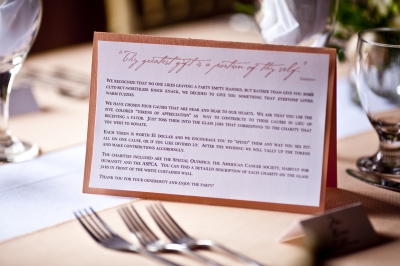 "The greatest gift is a portion of thy self"
We recognize that no one likes leaving a party empty handed, but rather than give you some
cute-but-worthless knick knack, we decided to give you something that everyone loves:
warm fuzzies.
We have chosen four causes that are near and dear to our hearts. We ask that you use the
colored "tokens of appreciation" as way to contribute to these causes in lieu of
receiving a favor. Just toss them into the glass jars that correspond to the charity that
you wish to donate.
Each token is worth dollar and we encourage you to "spend" them any way you see fit:
all on one cause, or if you like divided up. After the wedding we will tally up the tokens
and make contributions accordingly.
The charities included are the Special Olympics, the American Cancer Society, Habitat for
Humanity and the ASPCA. You can find a detailed description of each charity on the glass
jars in front of the white curtained wall.
Thank you for your generosity and enjoy the party!